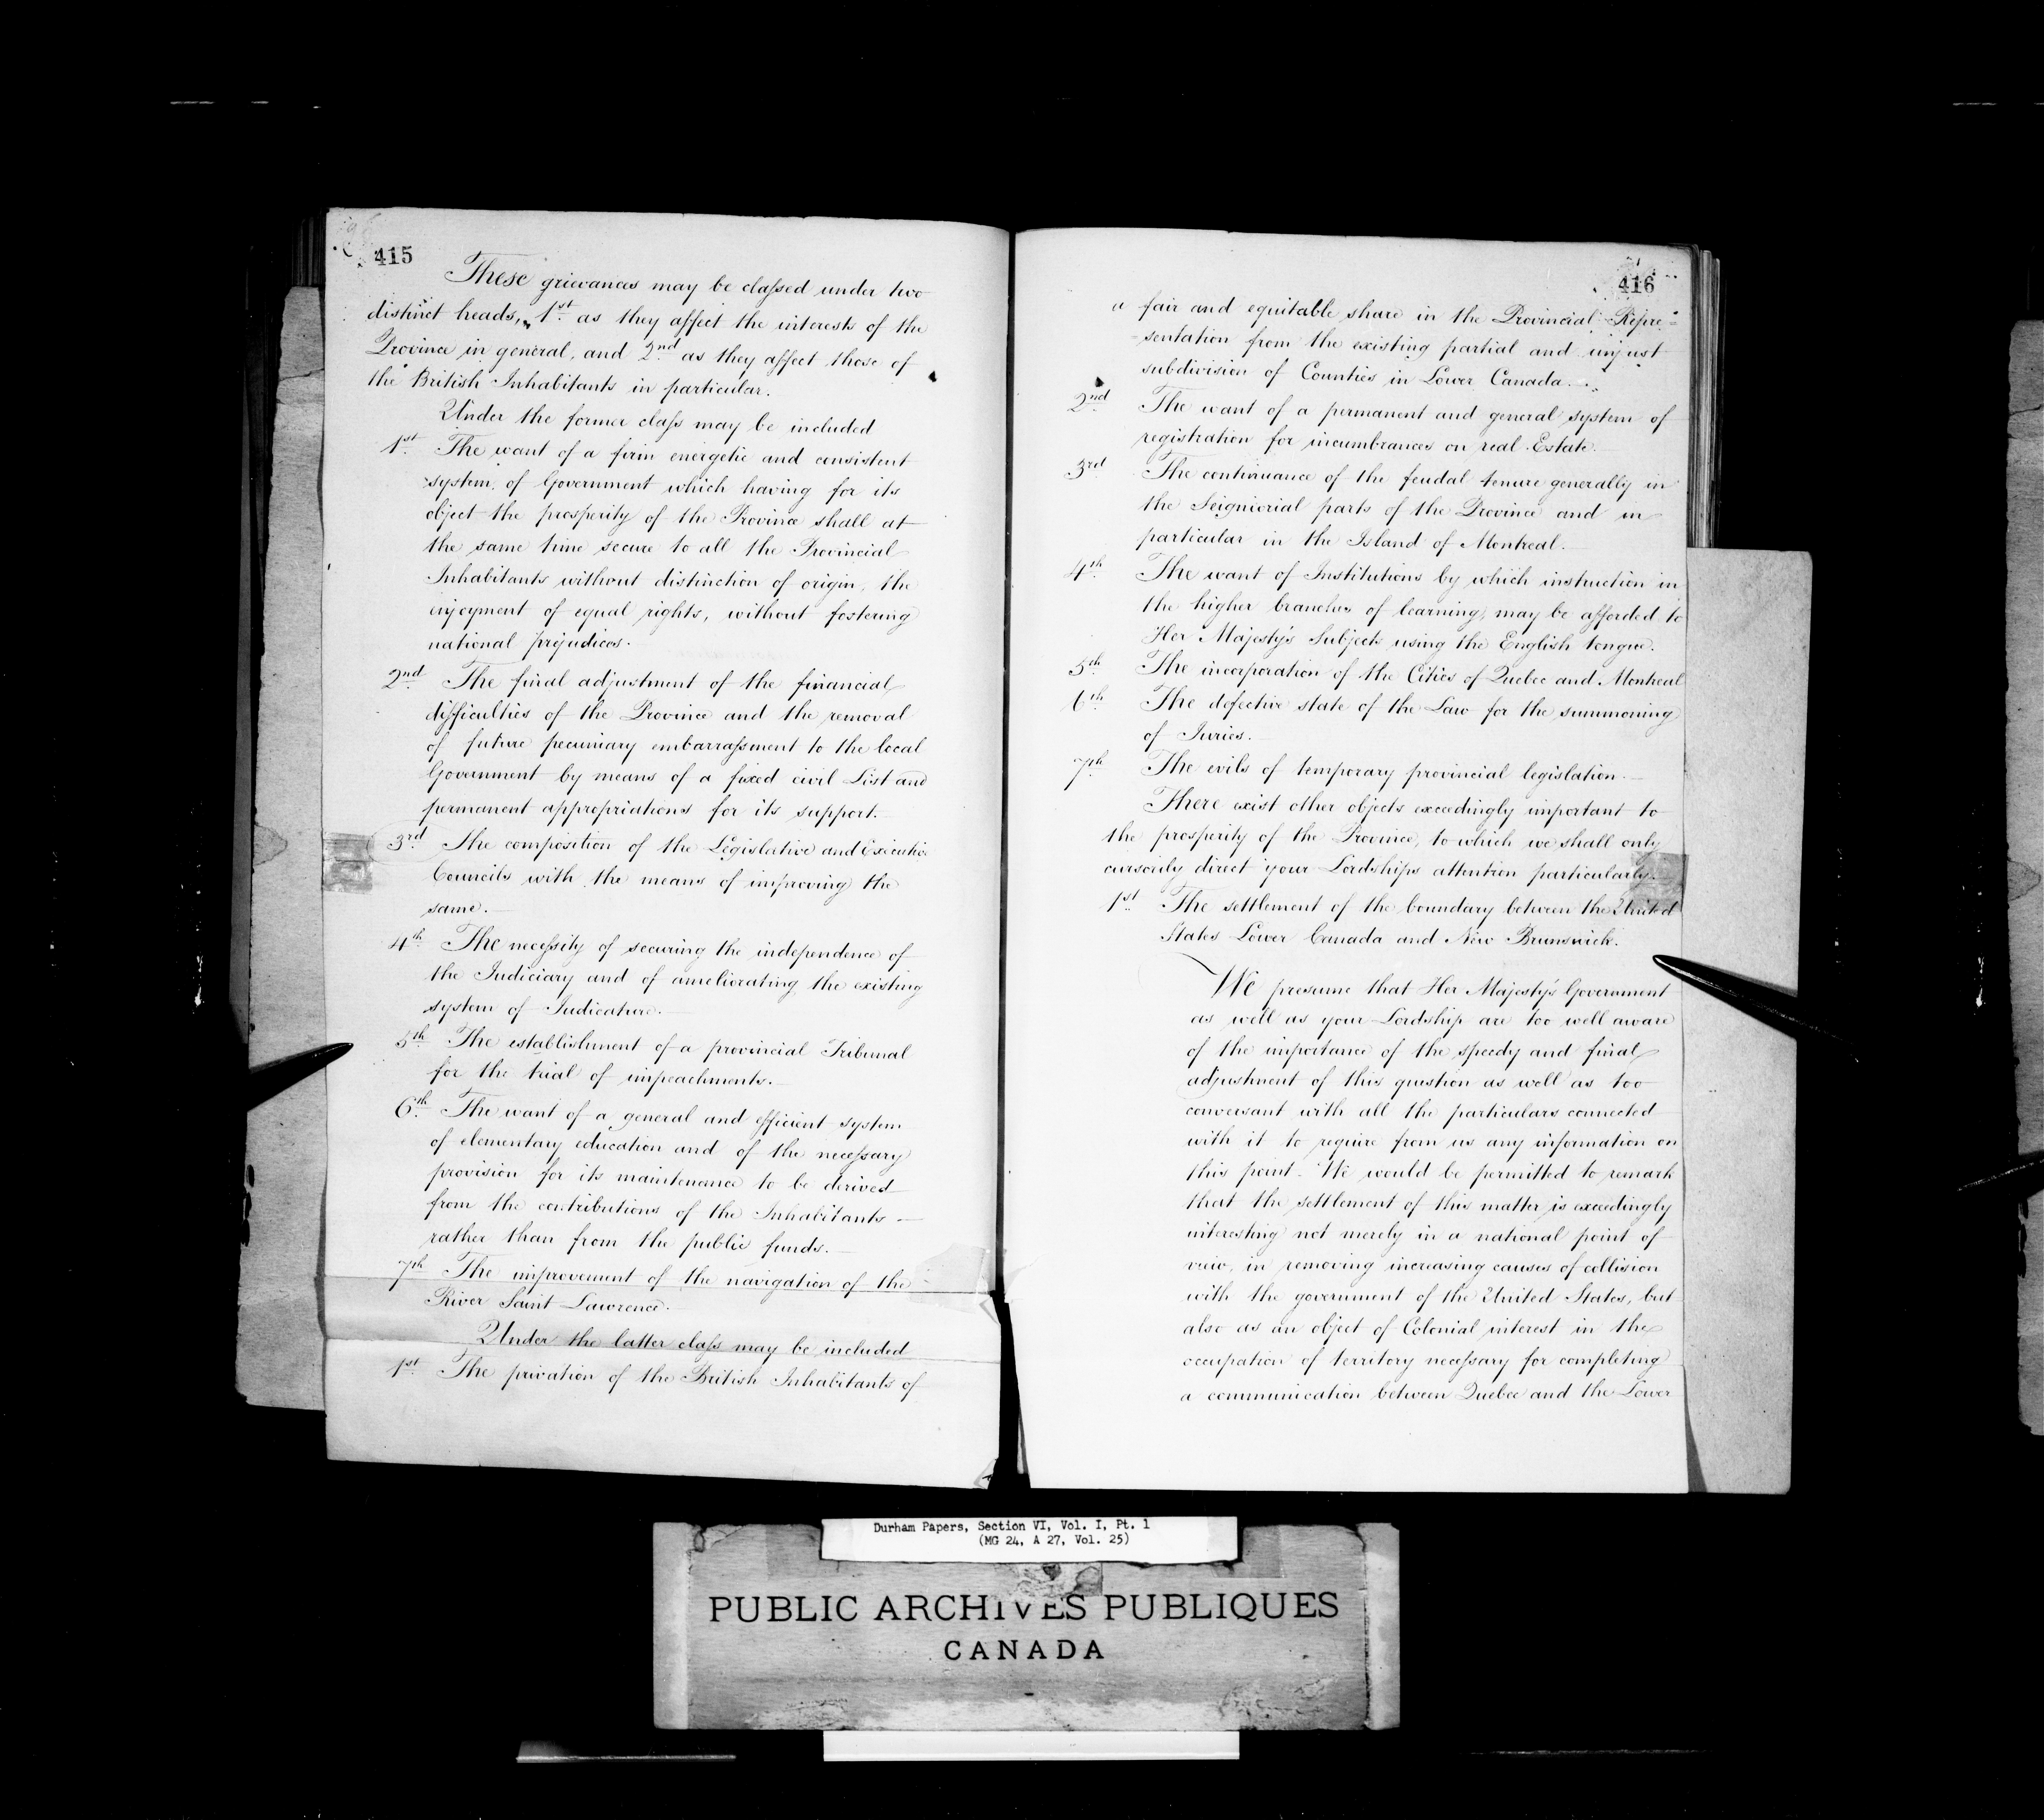 415
These grievances may be classed under two
distinct heads, 1st as they affect the interests of the
Province in general, and 2nd as they affect those of
the British Inhabitants in particular.
Under the former class may be included
1st The want of a firm energetic and consistent
system of Government which having for its
object the prosperity of the Province shall at
the same time secure to all the Provincial
Inhabitants without distinction of origin, the
enjoyment of equal rights, without fostering
national prejudices.
2nd The final adjustment of the financial
difficulties of the Province and the removal
of future pecuniary embarrassment to the local
Government by means of a fixed civil List and
permanent appropriations for its support.
3rd The composition of the Legislative and Executive
Councils with the means of improving the
same.
4th The necessity of securing the independence of
the Judiciary and of ameliorating the existing
system of Judicature.
5th The establishment of a provincial Tribunal
for the trial of impeachments.
6th The want of a general and efficient system
of elementary education and of the necessary
provision for its maintenance to be derived
from the contributions of the Inhabitants —
rather than from the public funds.
7th The improvement of the navigation of the
River Saint Lawrence.
Under the latter class may be included
1st The privation of the British Inhabitants of
416
a fair and equitable share in the Provincial Repre=
=sentation from the existing partial and unjust
subdivision of Counties in Lower Canada.
2nd The want of a permanent and general system of
registration for incumbrances on real Estate.
3rd The continuance of the feudal tenure generally in
the Seigniorial parts of the Province and in
particular in the Island of Montreal.
4th The want of Institutions by which instruction in
the higher branches of learning, may be afforded to
Her Majesty's Subjects using the English tongue.
5th The incorporation of the Cities of Quebec and Montreal
6th The defective state of the Law for the summoning
of Juries.
7th The evils of temporary provincial legislation.
There exist other objects exceedingly important to
the prosperity of the Province, to which we shall only
cursorily direct your Lordships attention particularly.
1st The settlement of the boundary between the United
States Lower Canada and New Brunswick.
We presume that Her Majesty's Government
as well as your Lordship are too well aware
of the importance of the speedy and final
adjustment of this question as well as too
conversant with all the particulars connected
with it to require from us any information on
this point. We would be permitted to remark
that the settlement of this matter is exceedingly
interesting not merely in a national point of
view, in removing increasing causes of collision
with the government of the United States, but
also as an object of Colonial interest in the
occupation of territory necessary for completing
a communication between Quebec and the Lower
Durham Papers, Section VI, Vol. I, Pt. 1
(MG 24, A 27, Vol. 25)
PUBLIC ARCHIVES PUBLIQUES
CANADA